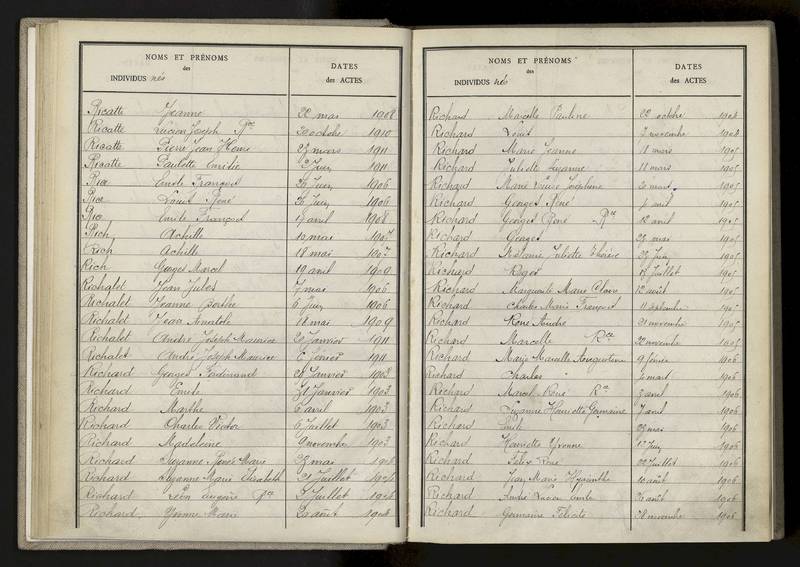 NOMS ET PRÉNOMS
des
INDIVIDUS nés
DATES
des ACTES
Ricatte Jeanne 22 mai 1908
Ricatte Lucien Joseph Rce 20 octobre 1910
Ricatte Pierre Jean Henri 27 mars 1911
Ricatte Paulette Emilie Juin 1911
Rice Emile François 26 Juin 1906
Rice Louis René 26 Juin 1906
Rice Emile François avril 1908
Rich Achille 10 mai 1907
Rich Achille 18 mai 1907
Rich Georges Marcel 19 avril 1909
Richalet Jean Jules 7 mai 1906
Richalet Jeanne Berthe 6 Juin 1906
Richalet Jean Anatole 18 mai 1909
Richalet André Joseph Maurice 20 Janvier 1911
Richalet André Joseph Maurice 6 février 1911
Richard Georges Ferdinand 20 Janvier 1903
Richard Emile 31 Janvier 1903
Richard Marthe 6 avril 1903
Richard Charles Victor 6 Juillet 1903
Richard Madeleine 9 novembre 1903
Richard Suzanne Renée Marie 23 mai 1904
Richard Suzanne Marie Elisabeth 21 Juillet 1904
Richard Léon Rce Juillet 1904
Richard Yvonne Marie 20 août 1904
NOMS ET PRÉNOMS
des
INDIVIDUS nés
DATES
des ACTES
Richard Marcelle Pauline 22 octobre 1904
Richard Louis 2 novembre 1904
Richard Marie Jeanne 11 mars 1905
Richard Juliette Suzanne 11 mars 1905
Richard Marie Louise Joséphine 20 mars 1905
Richard Georges René 4 avril 1905
Richard Georges René Rce 12 avril 1905
Richard Georges 23 mai 1905
Richard Juliette Thérèse 29 Juin 1905
Richard Roger 17 Juillet 1905
Richard Marguerite Marie Claire 12 août 1905
Richard Charles Marie François 11 septembre 1905
Richard René André 21 novembre 1905
Richard Marcelle Rce 22 novembre 1905
Richard Marie Marcelle Augustine 9 février 1906
Richard Charles mars 1906
Richard Marcel René Rce 3 avril 1906
Richard Suzanne Henriette Germaine 7 avril 1906
Richard Emile 22 mai 1906
Richard Henriette Yvonne Juin 1906
Richard Félix René 22 Juillet 1906
Richard Jean Marie Hyacinthe 10 août 1906
Richard André Lucien Emile août 1906
Richard Germaine Félicité 28 novembre 1906